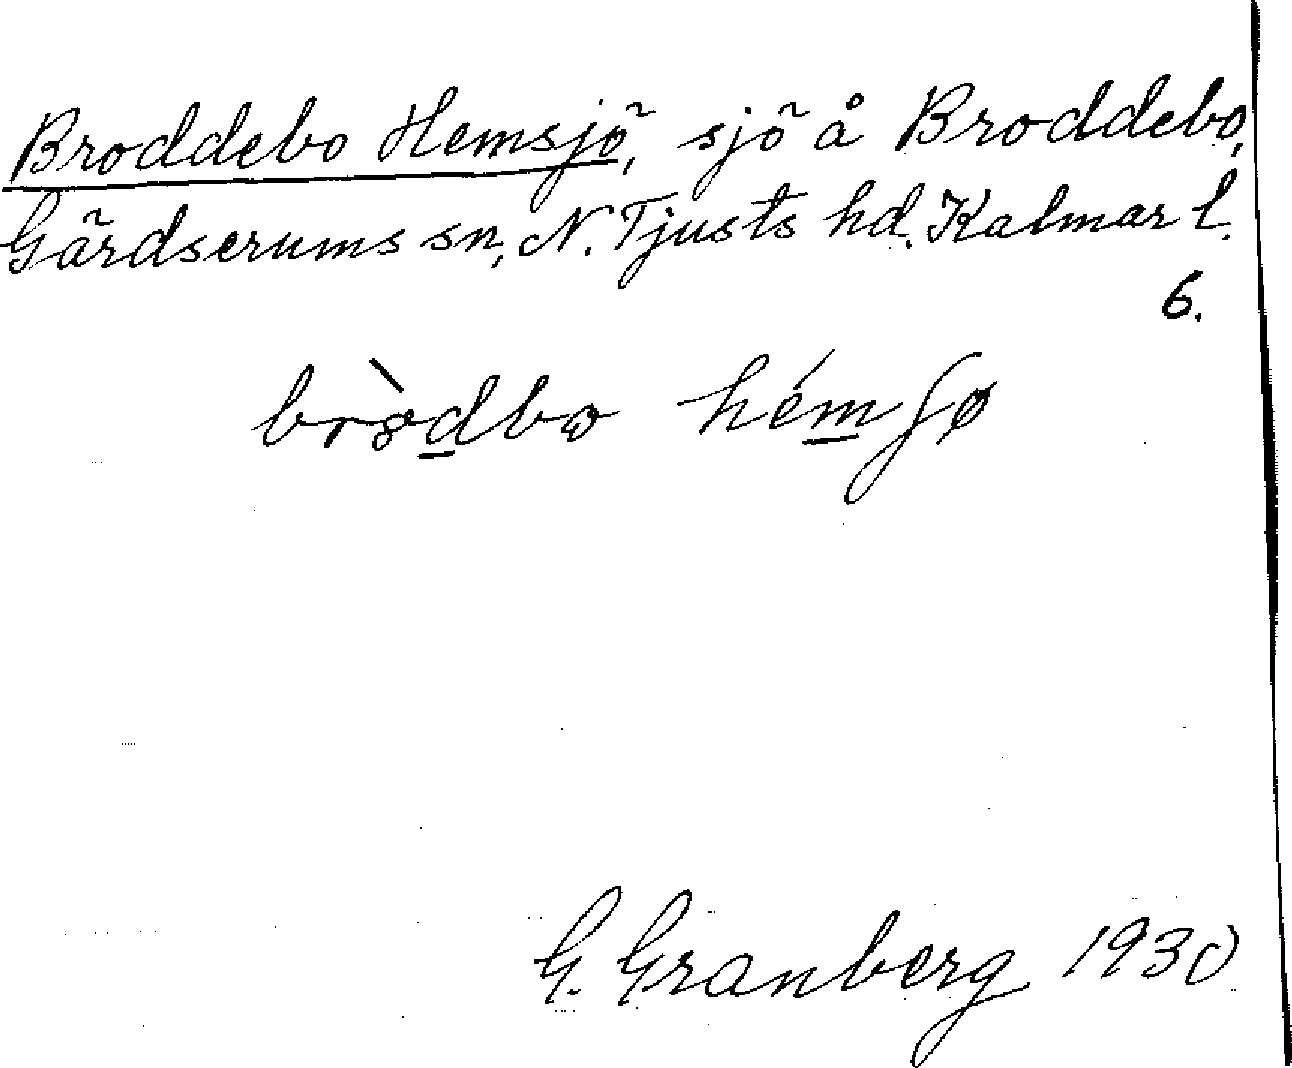 Broddebo Hemsjö, sjö å Broddebo,
Gärdserums sn, N. Tjusts hd. Kalmar l.
6.
hém̲ʃø
G. Granberg 1930